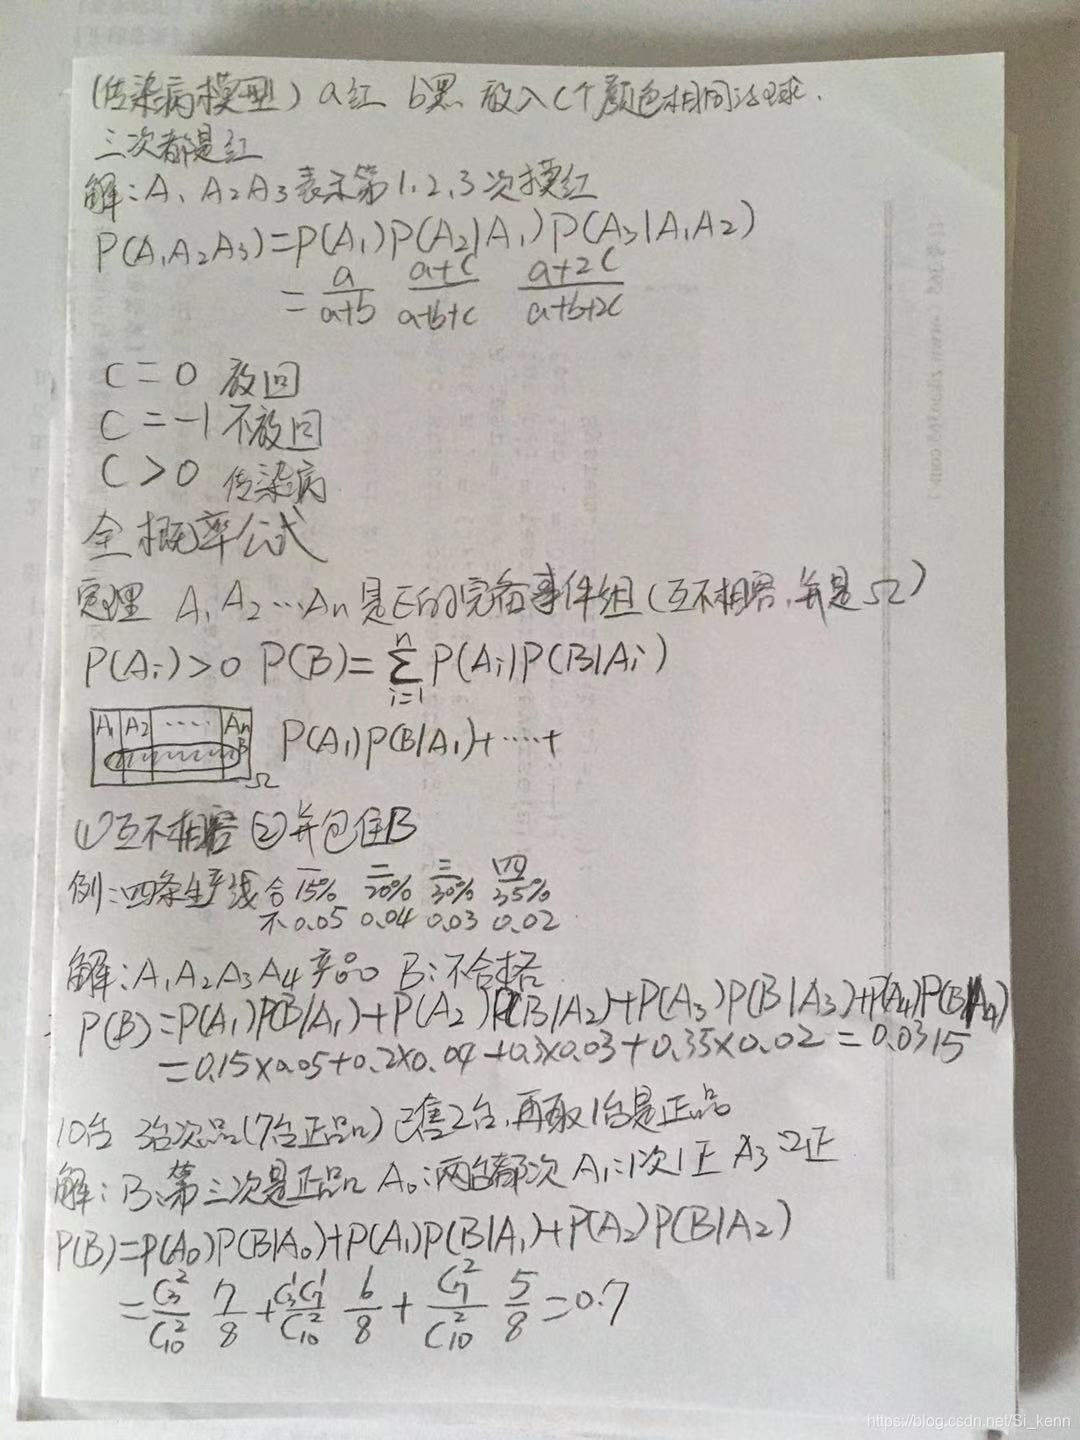 (传染病模型) a红 b黑 放入C个颜色相同的球.
三次都是红
解:A₁ A₂A₃表示第1,2,3次摸红
P(A₁A₂A₃)=P(A₁)P(A₂|A₁)P(A₃|A₁A₂)
= a/(a+b) (a+c)/(a+b+c) (a+2c)/(a+b+2c)
C=0 放回
C=-1 不放回
C>0 传染病
全概率公式
定理 A₁A₂…An是E的完备事件组(互不相容,并是Ω)
P(Ai)>0 P(B)=∑ⁿᵢ₌₁P(Ai)P(B|Ai)
A₁ A₂ ····· An B Ω P(A₁)P(B|A₁)+·····+
①互不相容 ②并包住B
例:四条生产线 合 一15% 二20% 三30% 四35%
不 0.05 0.04 0.03 0.02
解:A₁A₂A₃A₄产品 B:不合格
P(B)=P(A₁)P(B|A₁)+P(A₂)P(B|A₂)+P(A₃)P(B|A₃)+P(A₄)P(B|A₄)
=0.15×0.05+0.2×0.04+0.3×0.03+0.35×0.02=0.0315
10台 3台次品(7台正品)已售2台,再取1台是正品
解:B:第三次是正品 A₀:两台都次 A₁:1次1正 A₃:2正
P(B)=P(A₀)P(B|A₀)+P(A₁)P(B|A₁)+P(A₂)P(B|A₂)
= C₃²/C₁₀² 7/8 + C₃¹C₇¹/C₁₀² 6/8 + C₇²/C₁₀² 5/8 =0.7
https://blog.csdn.net/Si_kenn